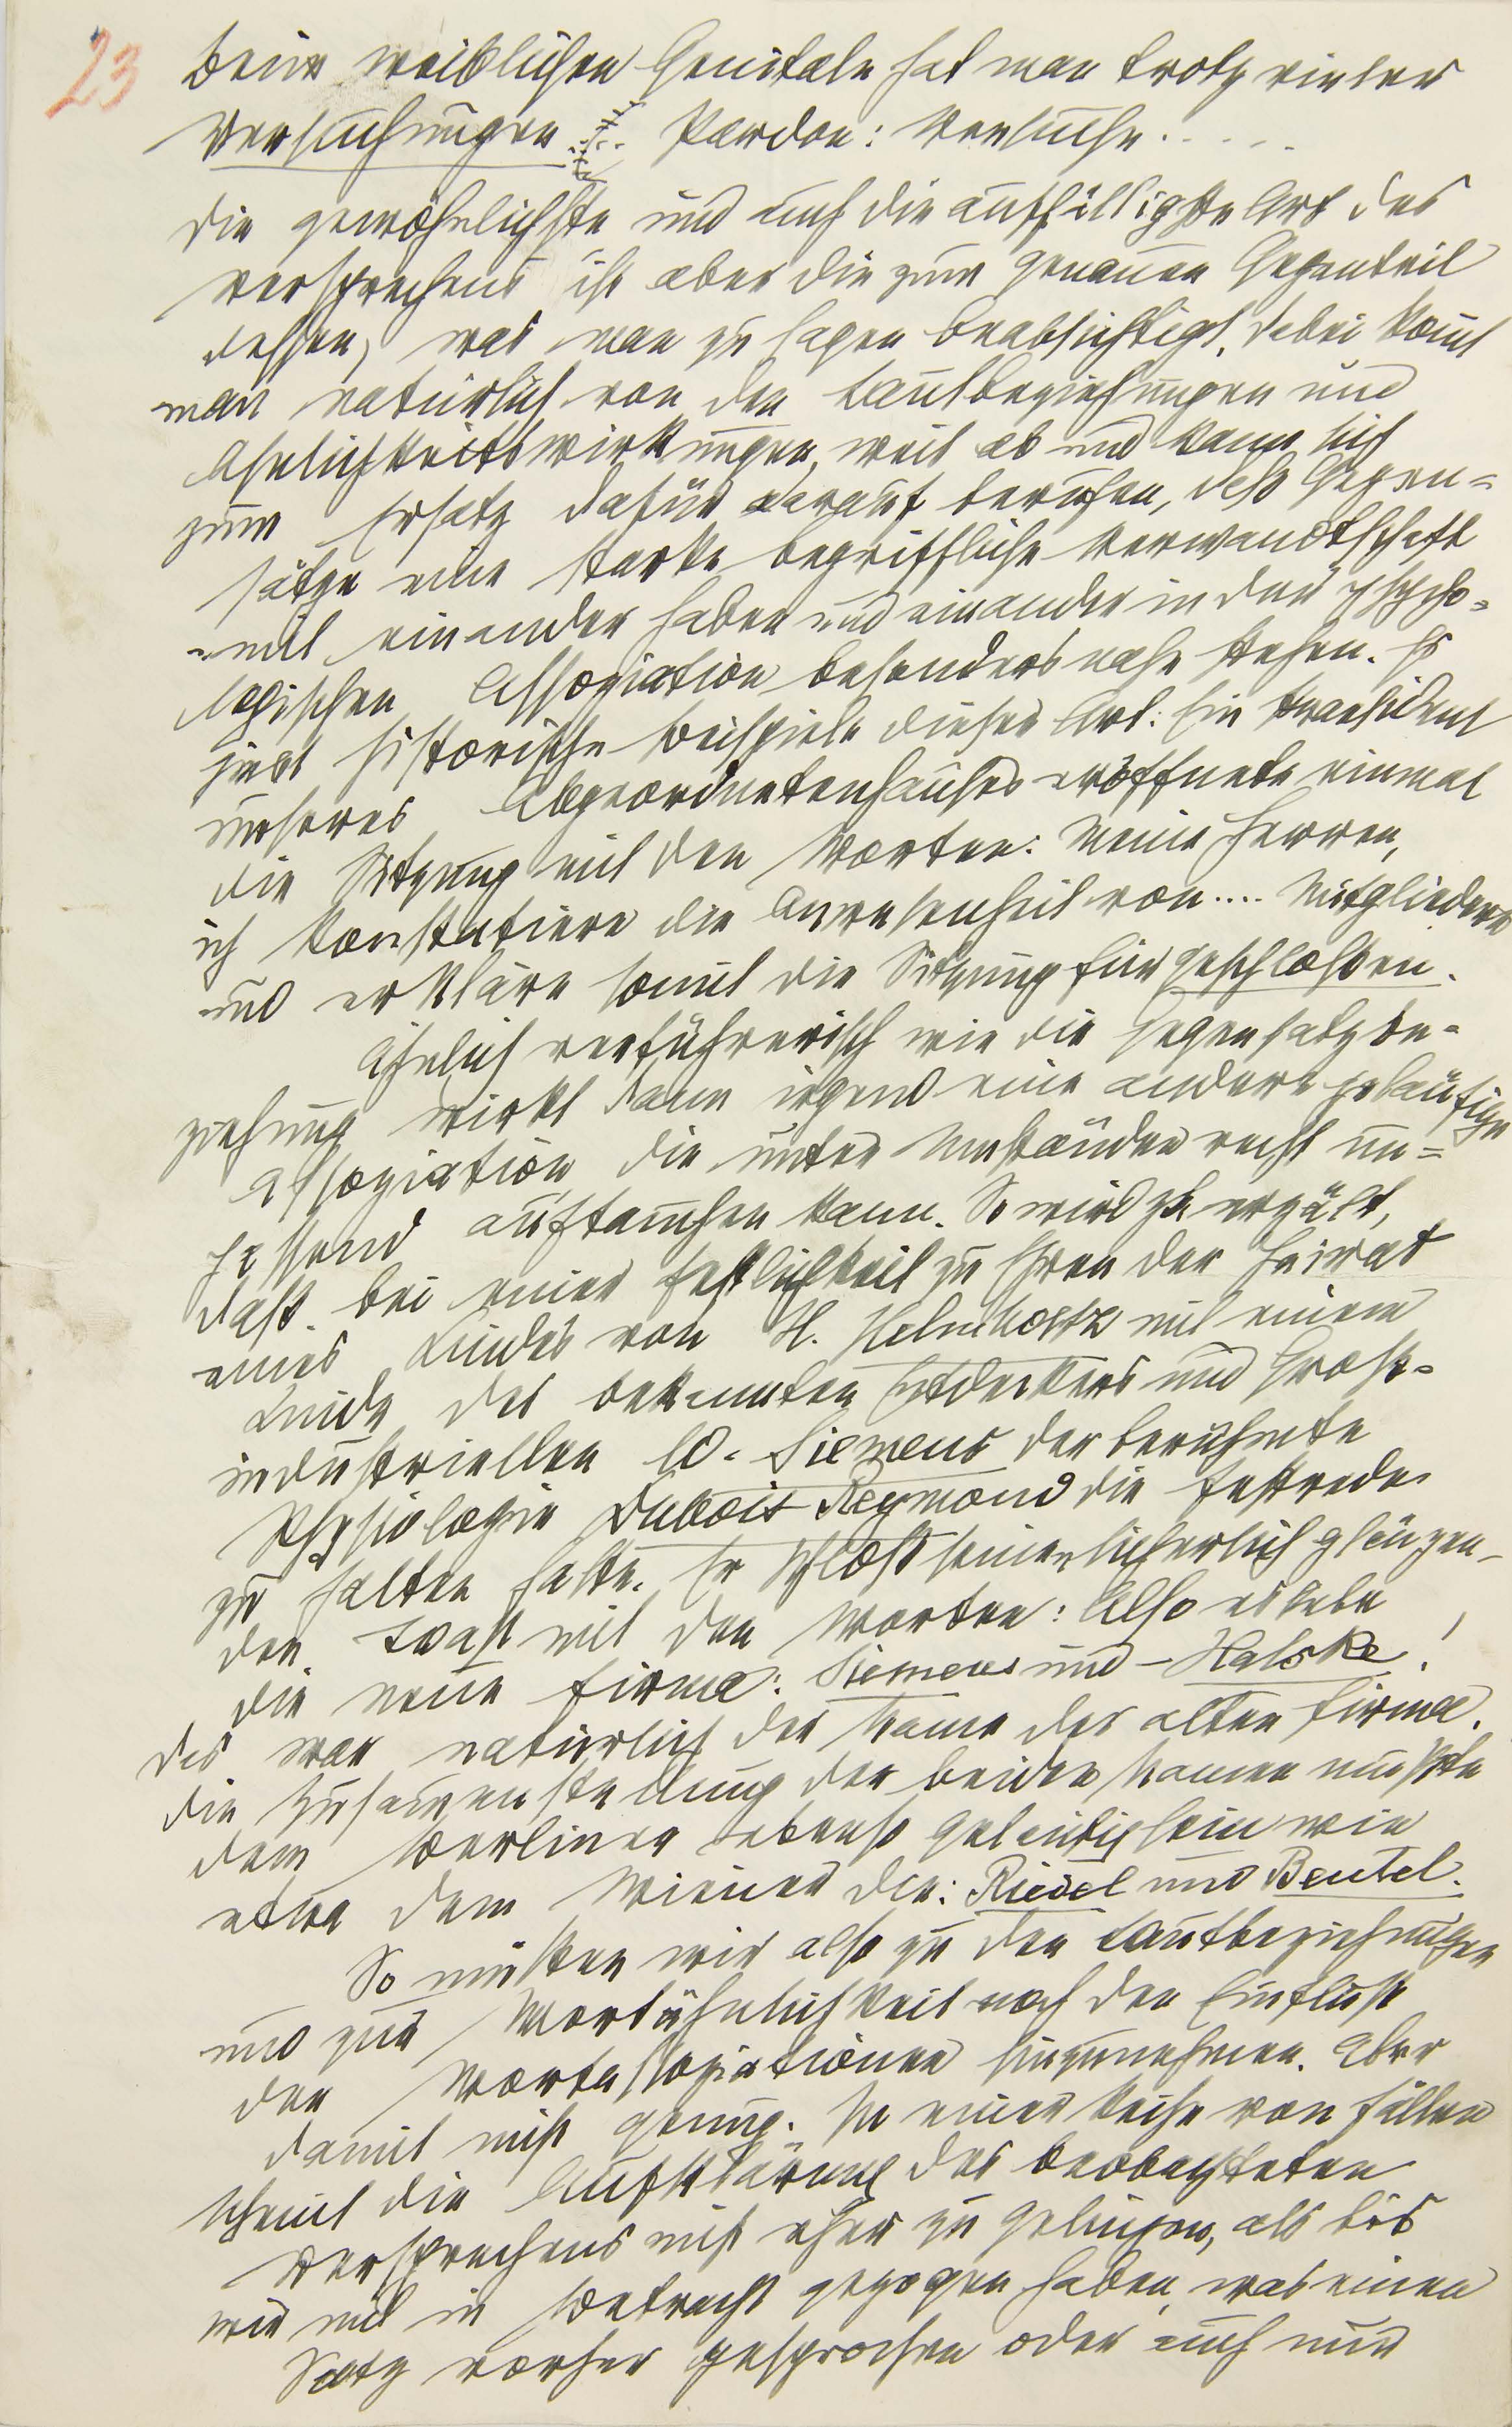 23
Beim weiblichen Genitale hat man trotz vieler
Versuchungen .... Pardon: Versuche.....
die gewöhnlichste und auch die auffälligste Art des
Versprechens ist aber die zum genauen Gegenteil
dessen, was man zu sagen beabsichtigt, dabei komt
man natürlich von den Lautbeziehungen und
Ähnlichkeitswirkungen weit ab und kann sich
zum Ersatz dafür darauf berufen, daß Gegen=
sätze eine starke begriffliche Verwandtschaft
mit einander haben und einander in der psycho=
logischen Assoziation besonders nahe stehen. Es
giebt historische Beispiele dieser Art: Ein Praesident
unseres Abgeordnetenhauses eröffnete einmal
die Sitzung mit den Worten: Meine Herren,
ich konstatiere die Anwesenheit von .... Mitgliedern
und erkläre somit die Sitzung für geschlossen.
Ähnlich verführerisch wie die Gegensatzbe-
ziehung wirkt dann irgend eine andere geläufige
Assoziation die unter Umständen recht un=
passend auftauchen kann. So wird zb erzält,
daß bei einer Festlichkeit zu Ehren der Heirat
eines Kindes von H. Helmholtz mit einem
Kinde des bekannten Entdeckers und Groß-
industriellen W. Siemens der berühmte
Physiologe Dubois-Reymond die Festrede
zu halten hatte. Er schloß seinen sicherlich glänzen-
den Toast mit den Worten: Also es lebe
die neue Firma: Siemens und - Halske!
das war natürlich der Name der alten Firma.
die Zusammenstellung der beiden Namen mußte
dem Berliner ebenso geläufig sein wie
etwa dem Wiener die: Riedel und Beutel.
So müßten wir also zu den Lautbeziehungen
und zur Wortähnlichkeit noch den Einfluß
der Wortassoziationen hinzunehmen. Aber
damit nicht genug. In einer Reihe von Fällen
scheint die Aufklärung des beobachteten
Versprechens nicht eher zu gelingen, als bis
wir mit in Betracht gezogen haben, was einen
Satz vorher gesprochen oder auch nur